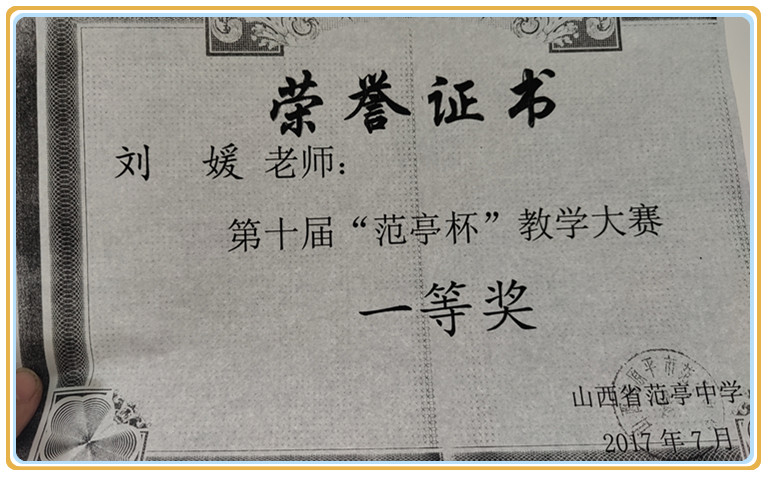 荣誉证书
刘 媛 老师：
第十届“范亭杯”教学大赛
一等奖
山西省范亭中学
2017年7月